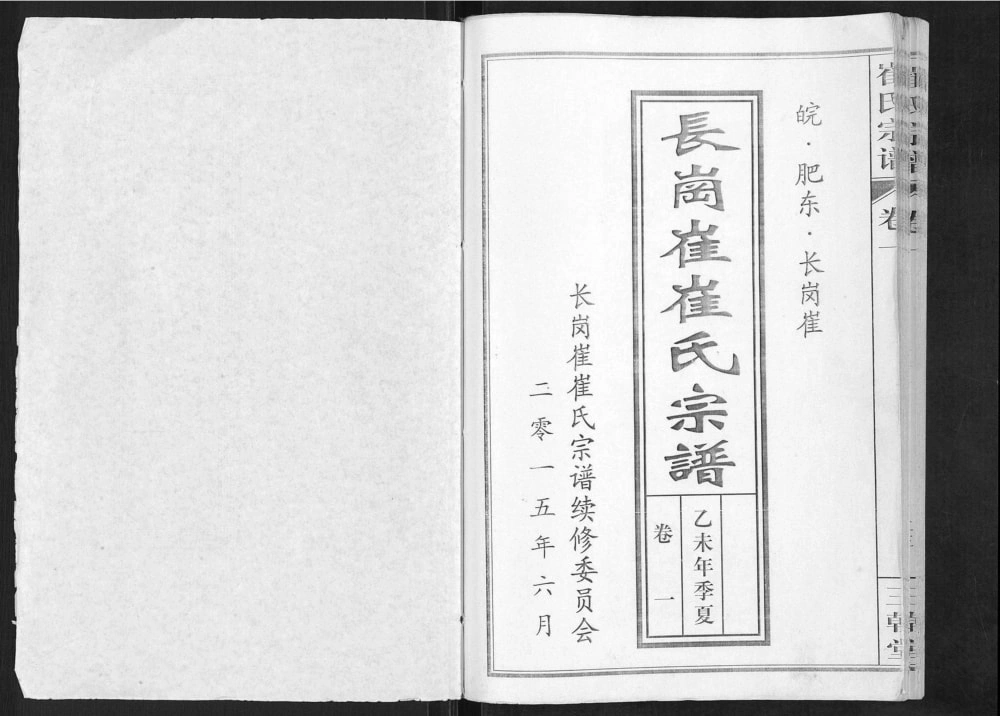 崔氏宗谱
卷一
三韩堂
皖·肥东·长岗崔
長崗崔崔氏宗譜
乙未年季夏
卷一
长岗崔崔氏宗谱续修委员会
二零一五年六月